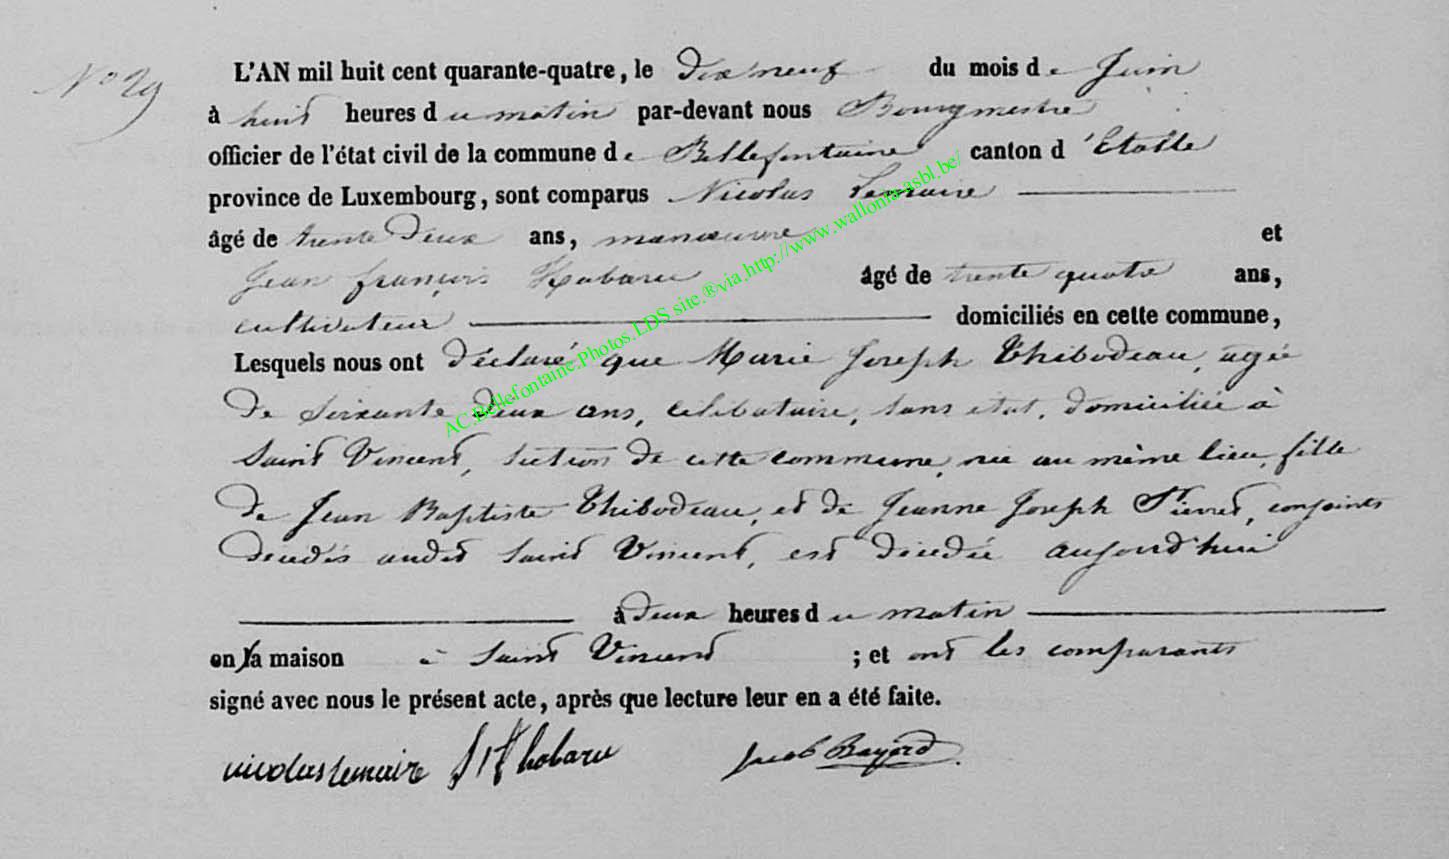 N° 29
L'AN mil huit cent quarante-quatre, le dix neuf du mois de Juin
à huit heures du matin par-devant nous Bourgmestre
officier de l'état civil de la commune de Bellefontaine canton d'Etalle
province de Luxembourg, sont comparus Nicolas Lemaire
âgé de trente deux ans, manœuvre et
Jean françois Habaru âgé de trente quatre ans,
cultivateur domiciliés en cette commune,
Lesquels nous ont déclaré que Marie Joseph Thibodeau, agée
de soixante deux ans, célibataire, sans état, domiciliée à
Saint Vincent, section de cette commune, née au même lieu, fille
de Jean Baptiste Thibodeau, et de Jeanne Joseph Pierret, conjoints
décédés audit Saint Vincent, est décédée aujourd'hui
à deux heures du matin
en sa maison à Saint Vincent ; et ont les comparants
signé avec nous le présent acte, après que lecture leur en a été faite.
nicolas lemaire J f habaru Jacob Bayard
AC.Bellefontaine.Photos.LDS site.®via.http://www.wallonia-asbl.be/